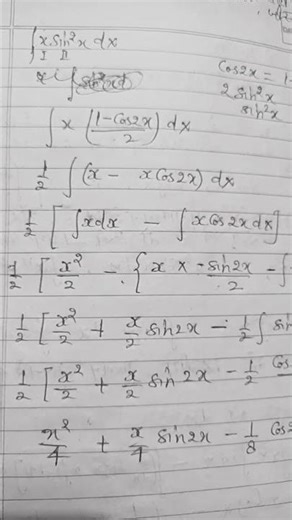 ∫ x. sin²x dx
I II
cos2x = 1-
∫ x (1-cos2x / 2) dx
2sin²x
sin²x
1/2 ∫ (x - x cos2x) dx
1/2 [ ∫ x dx - ∫ x cos 2x dx ]
1/2 [ x²/2 - { x × -sin2x/2 - ∫
1/2 [ x²/2 + x/2 sin2x - 1/2 ∫ sin
1/2 [ x²/2 + x/2 sin 2x - 1/2 cos
x²/4 + x/4 sin2x - 1/8 cos2